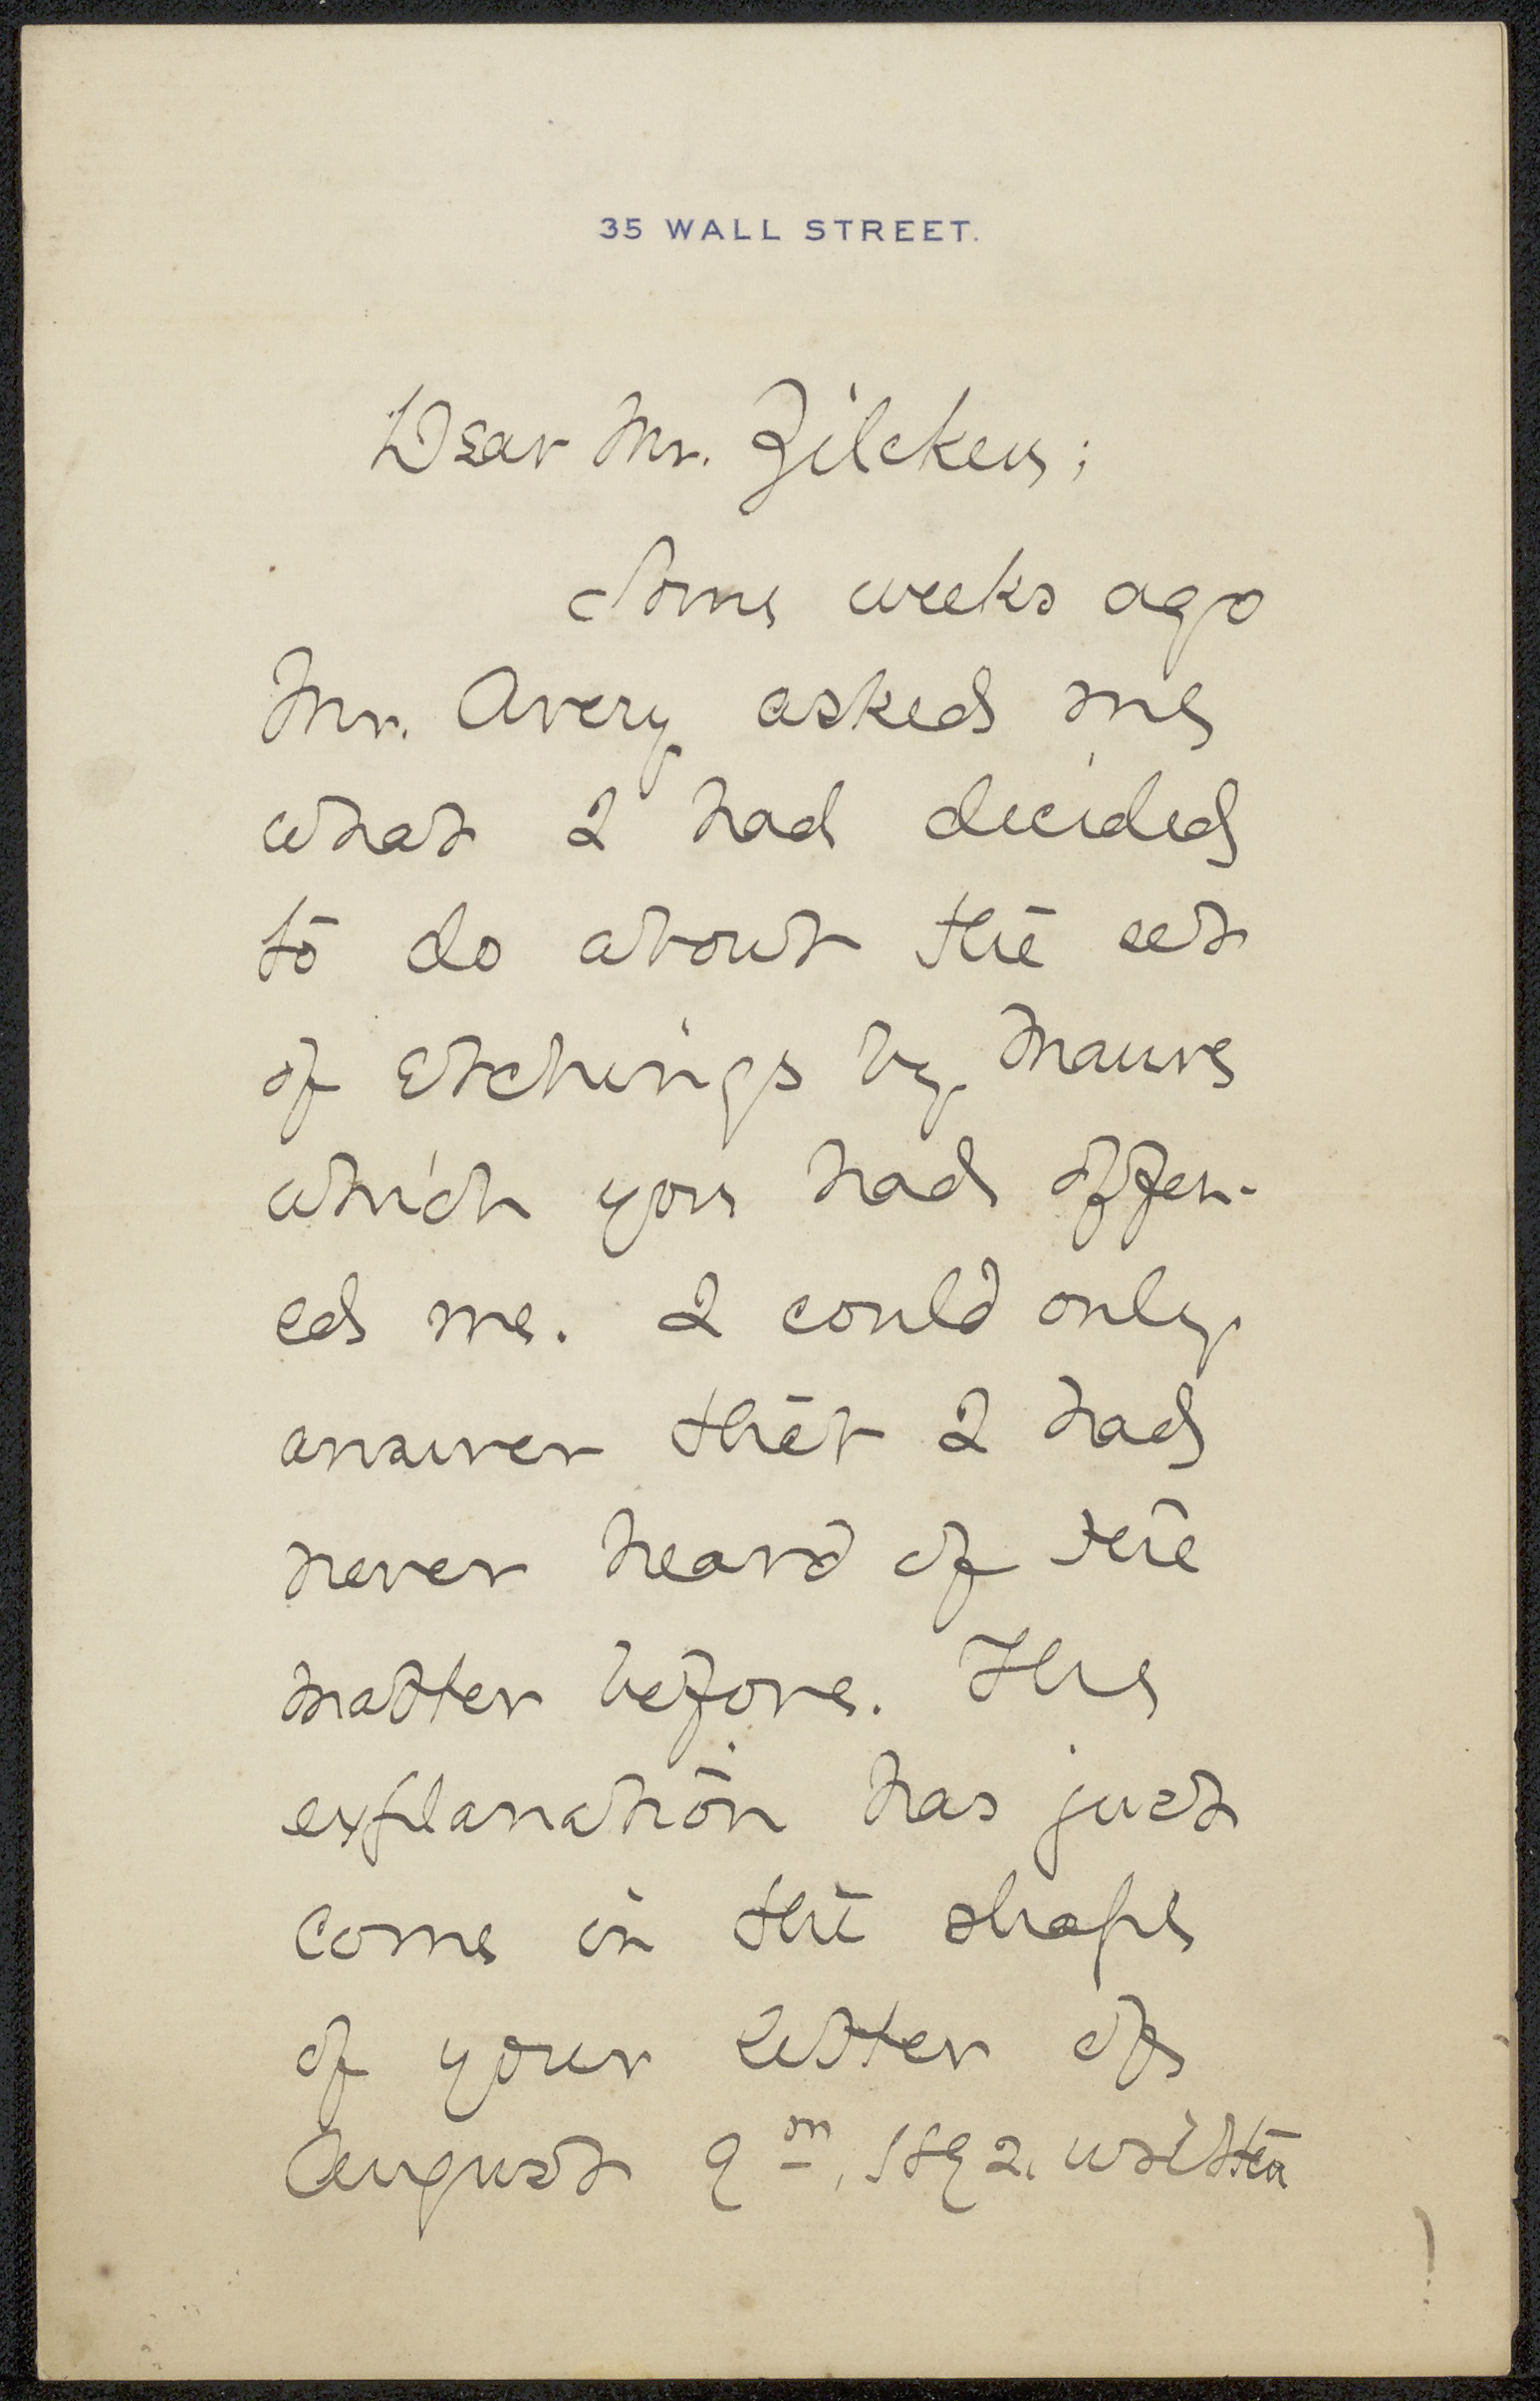 35 WALL STREET.
Dear Mr. Zilcken;
Some weeks ago
Mr. Avery asked me
what I had decided
to do about the set
of etchings by Mauve
which you had offer-
ed me. I could only
answer that I had
never heard of the
matter before. The
explanation has just
come in the shape
of your letter of
August 9th, 1892. written